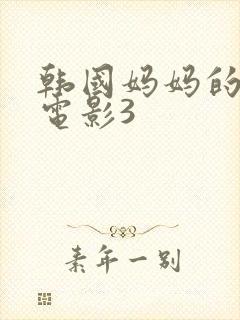 韩國妈妈的
電影3
素年一别